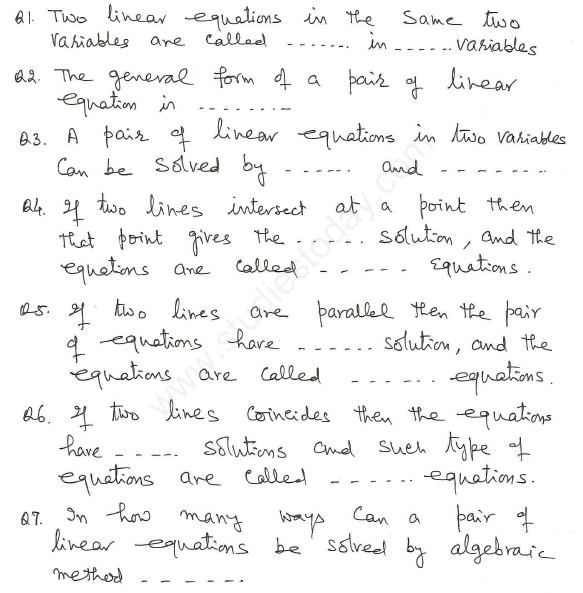 Q1. Two linear equations in the same two
variables are called ------- in ------ variables
Q2. The general form of a pair of linear
equation in --------
Q3. A pair of linear equations in two variables
Can be solved by ------ and -------
Q4. If two lines intersect at a point then
that point gives the ----- solution, and the
equations are called ----- Equations.
Q5. If two lines are parallel then the pair
of equations have ------ solution, and the
equations are called ------ equations.
Q6. If two lines Coincides then the equations
have ----- solutions and such type of
equations are called ------ equations.
Q7. In how many ways Can a pair of
linear equations be solved by algebraic
method ------
www.studiestoday.com